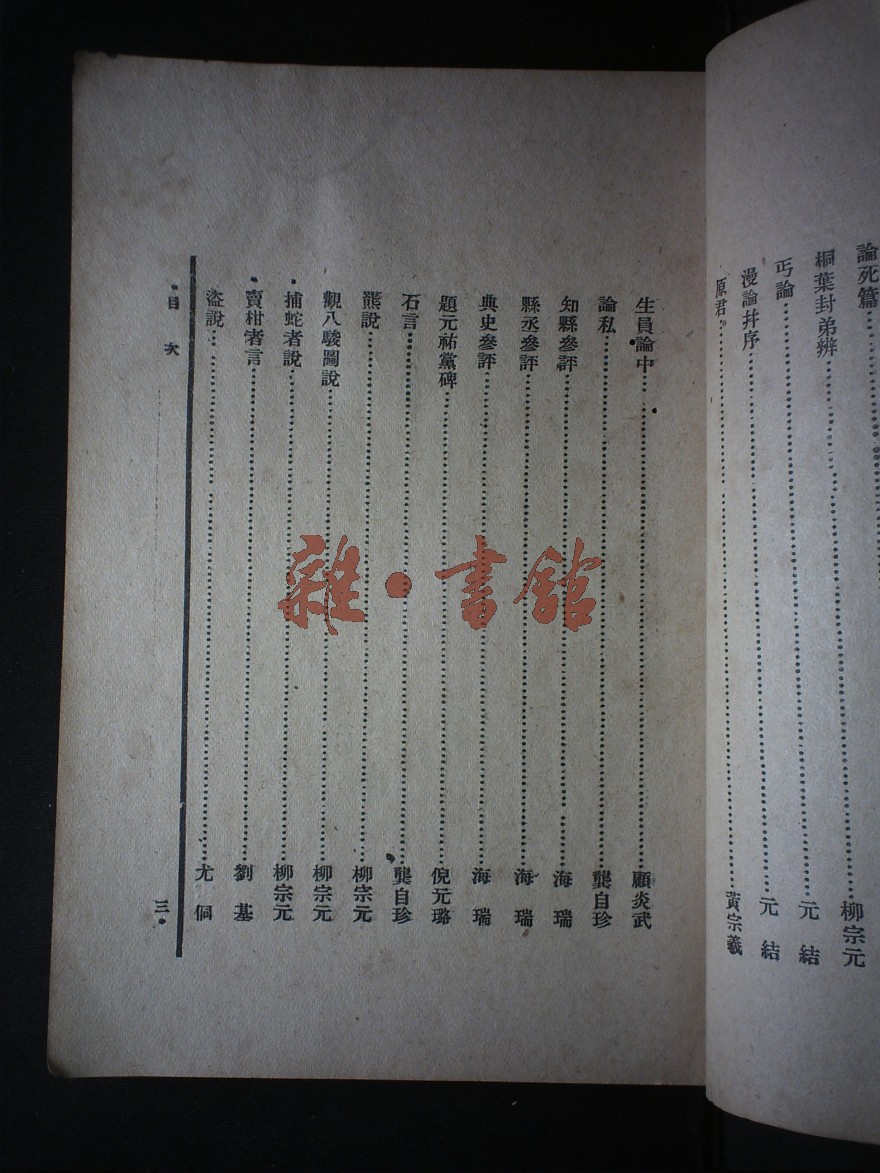 論死篇
桐葉封弟辨 柳宗元
丐論 元結
漫論幷序 元結
原君 黃宗羲
生員論中 顧炎武
論私 龔自珍
知縣參評 海瑞
縣丞參評 海瑞
典史參評 海瑞
題元祐黨碑 倪元璐
石言 龔自珍
熊說 柳宗元
觀八駿圖說 柳宗元
捕蛇者說 柳宗元
賣柑者言 劉基
盜說 尤侗
目次 三
雜·書館